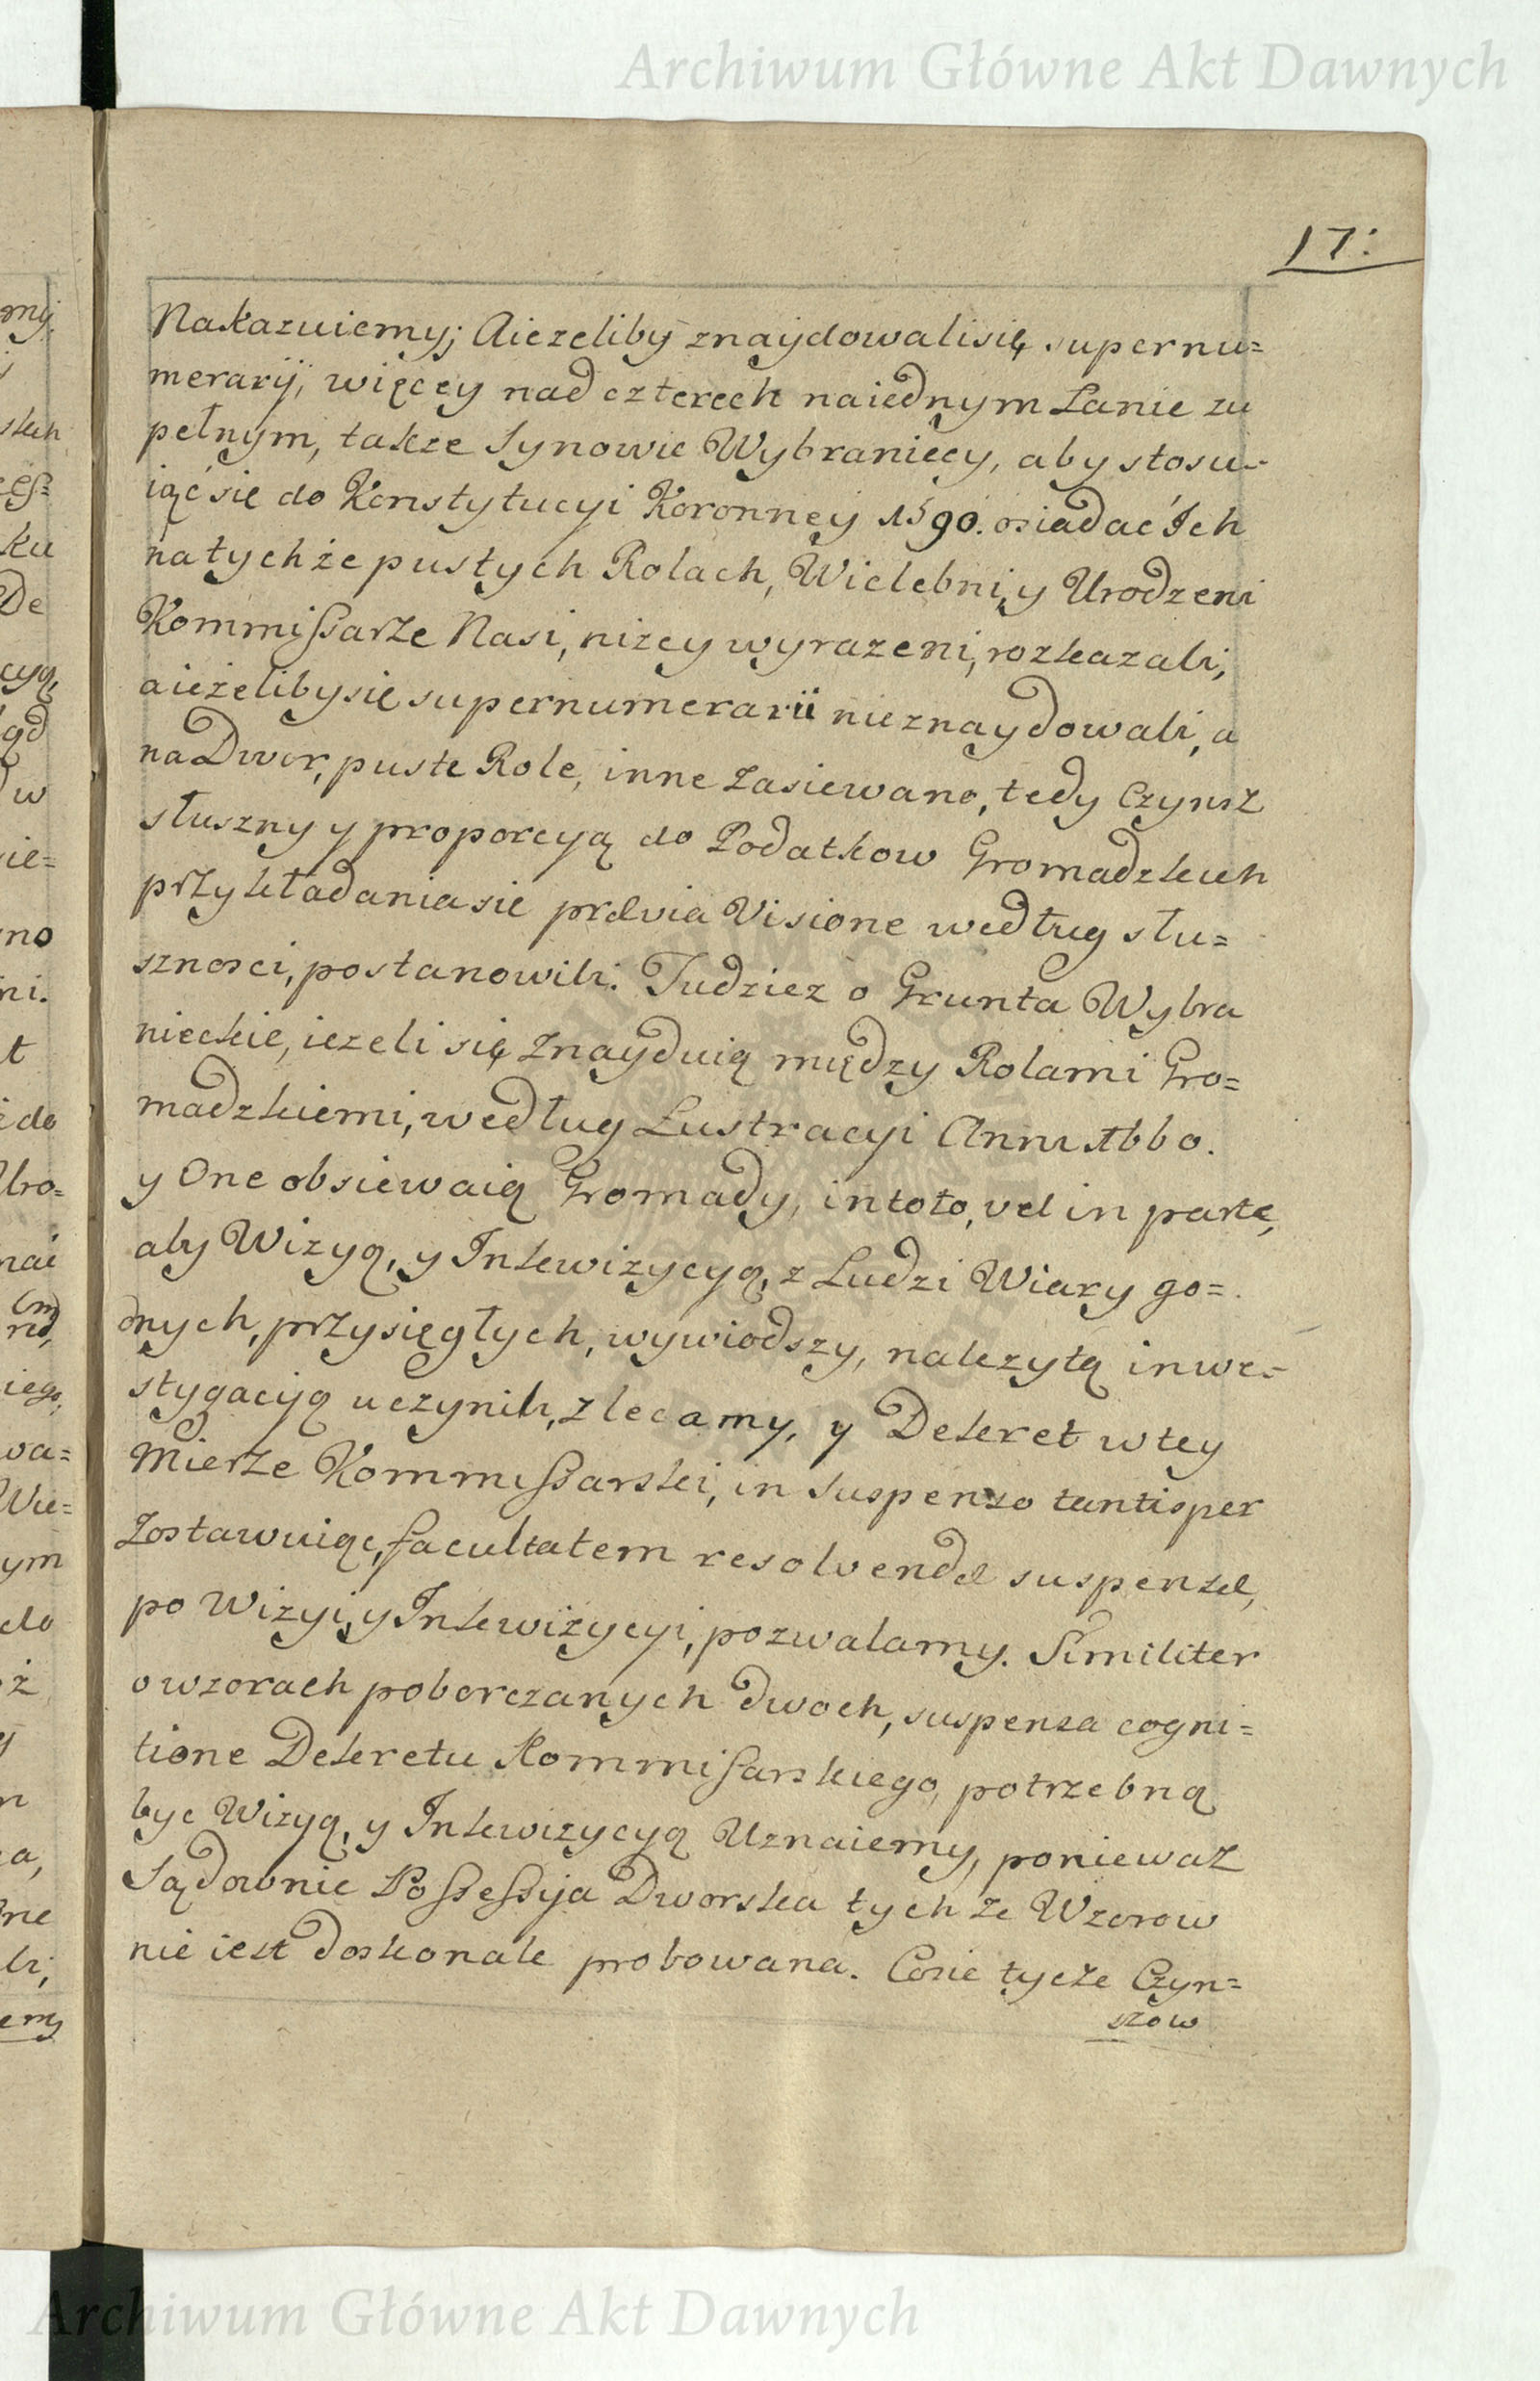 Archiwum Główne Akt Dawnych
17:
Nakazuiemy; Aiezeliby znaydowalisię supernu=
merarij, więcey nad czterech naiednym Łanie zu
pełnym, także Synowie Wybraniecy, aby stosu=
iąć się do Konstytucyi Koronney 1590. osiadać Ich
natychże pustych Rolach, Wielebni, y Urodzeni
Kommissarze Nasi, niżey wyrazeni, rozkazali;
aieżelibysię supernumerarii nieznaydowali, a
na Dwor, puste Role, inne zasiewano, tedy Czynsz
słuszny y proporcyą do Podatkow Gromadzkich
przykładaniasie prævia Visione według słu=
sznosci, postanowili. Tudziez o Grunta Wybra
nieckie, iezeli się znayduią między Rolami Gro=
madzkiemi, według Lustracyi Anni 1660.
y One obsiewaią Gromady, intoto, vel in parte,
aby Wizyą, y Inkwizycyą, z Ludzi Wiary go=
dnych, przysięgłych, wywiodszy, należytą inwe=
stygacyją uczynili, zlecamy, y Dekret wtey
Mierze Kommissarski, in suspenso tantisper
zostawuiąc, facultatem resolvendæ suspensæ,
po Wizyi, y Inkwizycyi, pozwalamy. Similiter
o wzorach poborczanych dwoch, suspensa cogni=
tione Dekretu Kommisarskiego, potrzebną
byc Wizyą, y Inkwizycyą Uznaiemy, poniewaz
Sądownie Possessyja Dworska tychze Wzorow
nie iest doskonale probowana. Cosie tycze Czyn=
szow
Archiwum Główne Akt Dawnych